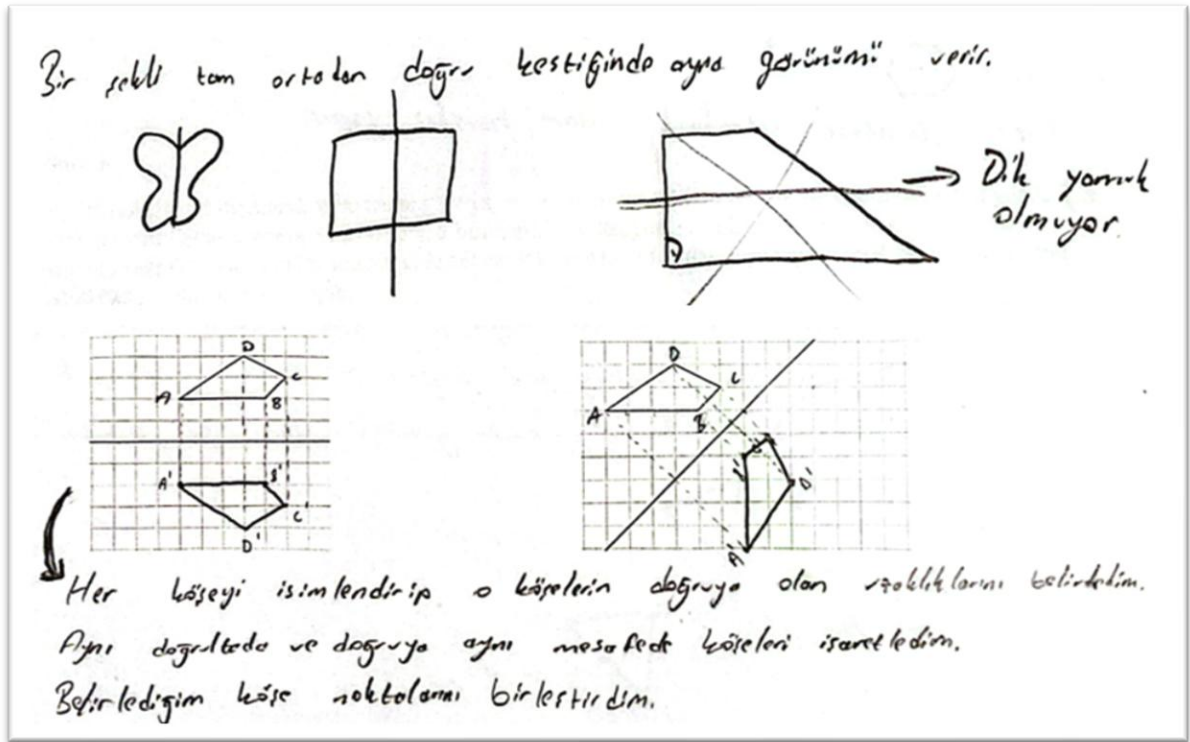 Bir şekli tam ortadan doğru kestiğinde aynı görünümü verir.
Dik yamuk
olmuyor.
D
C
A
B
A'
B'
C'
D'
D
C
A
B
D'
A'
Her köşeyi isimlendirip o köşelerin doğruya olan uzaklıklarını belirledim.
Aynı doğrultuda ve doğruya aynı mesafede köşeleri işaretledim.
Belirlediğim köşe noktalarını birleştirdim.